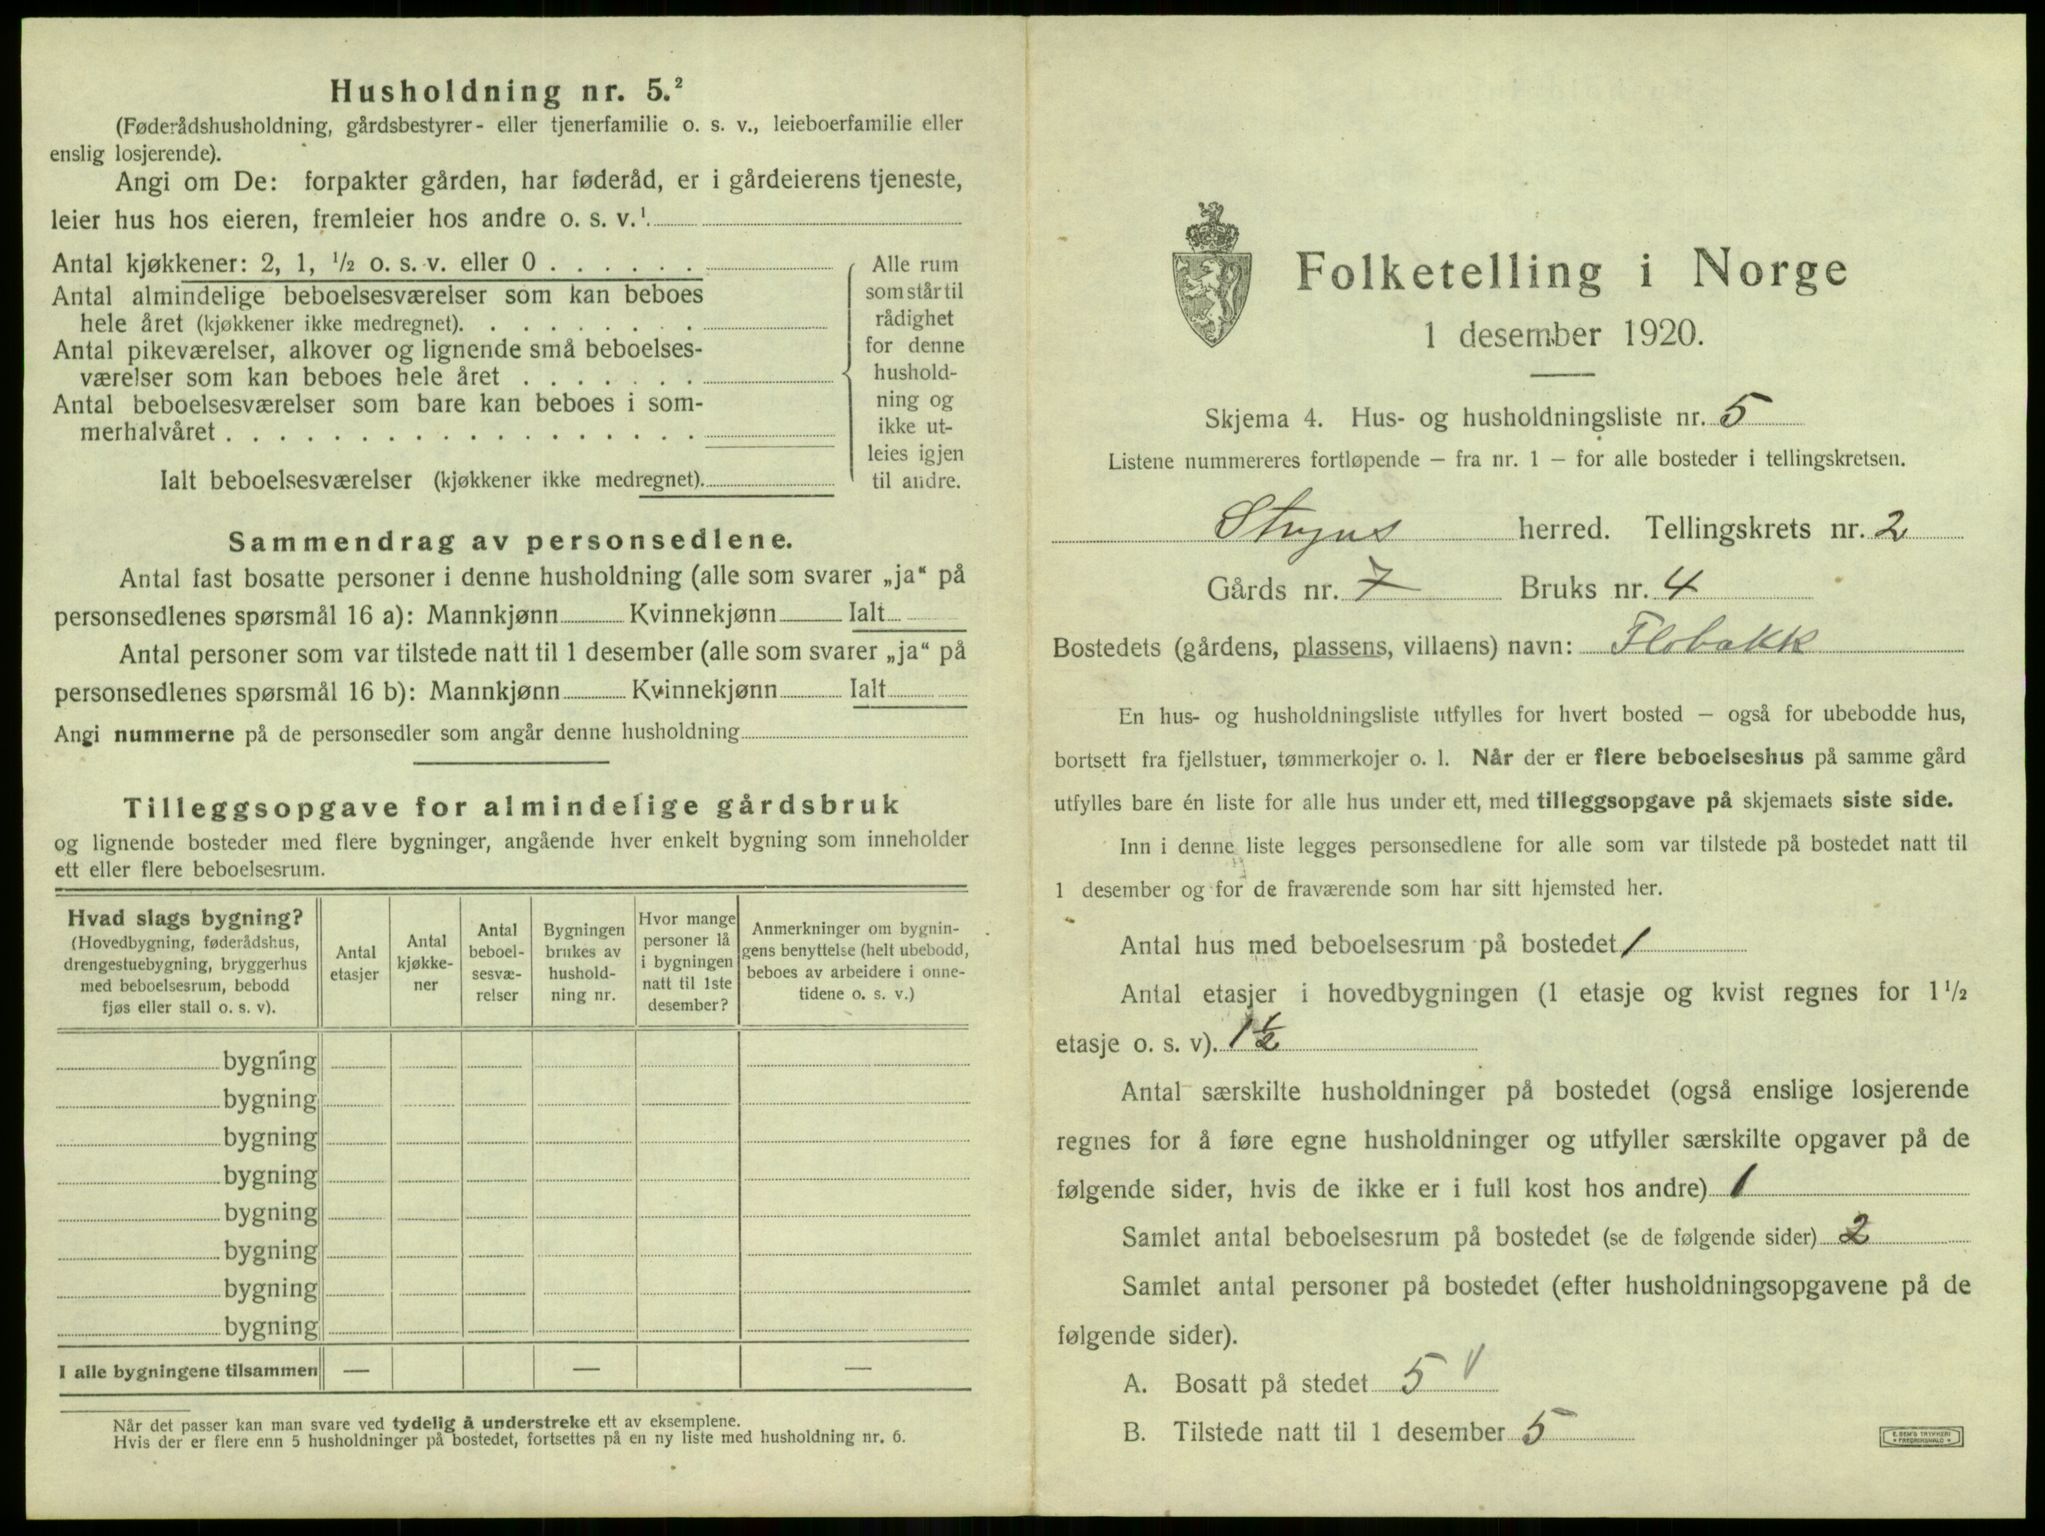 Husholdning nr. 5.²
(Føderådshusholdning, gårdsbestyrer- eller tjenerfamilie o. s. v., leieboerfamilie eller
enslig losjerende).
Angi om De: forpakter gården, har føderåd, er i gårdeierens tjeneste,
leier hus hos eieren, fremleier hos andre o. s. v.¹
Antal kjøkkener: 2, 1, ½ o. s. v. eller 0 . . . . . .
Antal almindelige beboelsesværelser som kan beboes
hele året (kjøkkener ikke medregnet). . . . . . . . .
Antal pikeværelser, alkover og lignende små beboelses-
værelser som kan beboes hele året . . . . . . .
Antal beboelsesværelser som bare kan beboes i som-
merhalvåret . . . . . . . . . . . . . . . . . .
Ialt beboelsesværelser (kjøkkener ikke medregnet).
Alle rum
som står til
rådighet
for denne
hushold-
ning og
ikke ut-
leies igjen
til andre.
Sammendrag av personsedlene.
Antal fast bosatte personer i denne husholdning (alle som svarer „ja“ på
personsedlenes spørsmål 16 a): Mannkjønn Kvinnekjønn Ialt
Antal personer som var tilstede natt til 1 desember (alle som svarer „ja“ på
personsedlenes spørsmål 16 b): Mannkjønn Kvinnekjønn Ialt
Angi nummerne på de personsedler som angår denne husholdning
Tilleggsopgave for almindelige gårdsbruk
og lignende bosteder med flere bygninger, angående hver enkelt bygning som inneholder
ett eller flere beboelsesrum.
Hvad slags bygning?
(Hovedbygning, føderådshus,
drengestuebygning, bryggerhus
med beboelsesrum, bebodd
fjøs eller stall o. s. v).
Antal
etasjer
Antal
kjøkke-
ner
Antal
beboel-
sesvæ-
relser
Bygningen
brukes av
hushold-
ning nr.
Hvor mange
personer lå
i bygningen
natt til 1ste
desember?
Anmerkninger om bygnin-
gens benyttelse (helt ubebodd,
beboes av arbeidere i onne-
tidene o. s. v.)
bygning
bygning
bygning
bygning
bygning
bygning
bygning
bygning
I alle bygningene tilsammen — — —
Når det passer kan man svare ved tydelig å understreke ett av eksemplene.
Hvis der er flere enn 5 husholdninger på bostedet, fortsettes på en ny liste med husholdning nr. 6.
Folketelling i Norge
1 desember 1920.
Skjema 4. Hus- og husholdningsliste nr. 5
Listene nummereres fortløpende – fra nr. 1 – for alle bosteder i tellingskretsen.
Stryns herred. Tellingskrets nr. 2
Gårds nr. 7 Bruks nr. 4
Bostedets (gårdens, plassens, villaens) navn: Flobakk
En hus- og husholdningsliste utfylles for hvert bosted – også for ubebodde hus,
bortsett fra fjellstuer, tømmerkojer o. l. Når der er flere beboelseshus på samme gård
utfylles bare én liste for alle hus under ett, med tilleggsopgave på skjemaets siste side.
Inn i denne liste legges personsedlene for alle som var tilstede på bostedet natt til
1 desember og for de fraværende som har sitt hjemsted her.
Antal hus med beboelsesrum på bostedet 1
Antal etasjer i hovedbygningen (1 etasje og kvist regnes for 1 ½
etasje o. s. v). 1 ½
Antal særskilte husholdninger på bostedet (også enslige losjerende
regnes for å føre egne husholdninger og utfyller særskilte opgaver på de
følgende sider, hvis de ikke er i full kost hos andre) 1
Samlet antal beboelsesrum på bostedet (se de følgende sider) 2
Samlet antal personer på bostedet (efter husholdningsopgavene på de
følgende sider).
A. Bosatt på stedet 5
B. Tilstede natt til 1 desember 5